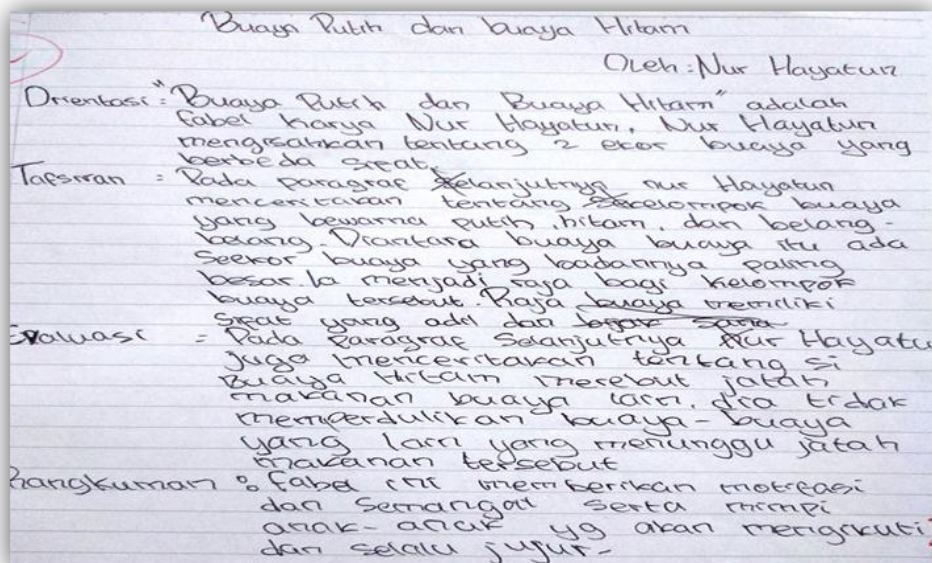 Buaya Putih dan buaya Hitam
Oleh : Nur Hayatun
Orientasi : "Buaya Putih dan Buaya Hitam" adalah
fabel karya Nur Hayatun. Nur Hayatun
mengisahkan tentang 2 ekor buaya yang
berbeda sifat.
Tafsiran : Pada paragraf selanjutnya nur Hayatun
menceritakan tentang Sekelompok buaya
yang bewarna putih, hitam, dan belang-
belang. Diantara buaya buaya itu ada
Seekor buaya yang badannya paling
besar. Ia menjadi raja bagi kelompok
buaya tersebut. Raja buaya memiliki
sifat yang adil dan
Evaluasi : Pada Paragraf Selanjutnya Nur Hayatu
juga menceritakan tentang si
Buaya Hitam merebut jatah
makanan buaya lain. dia tidak
memperdulikan buaya-buaya
yang lain yang menunggu jatah
makanan tersebut
Rangkuman : fabel ini memberikan motifasi
dan Semangat serta mimpi
anak-anak yg akan mengikuti
dan selalu jujur-